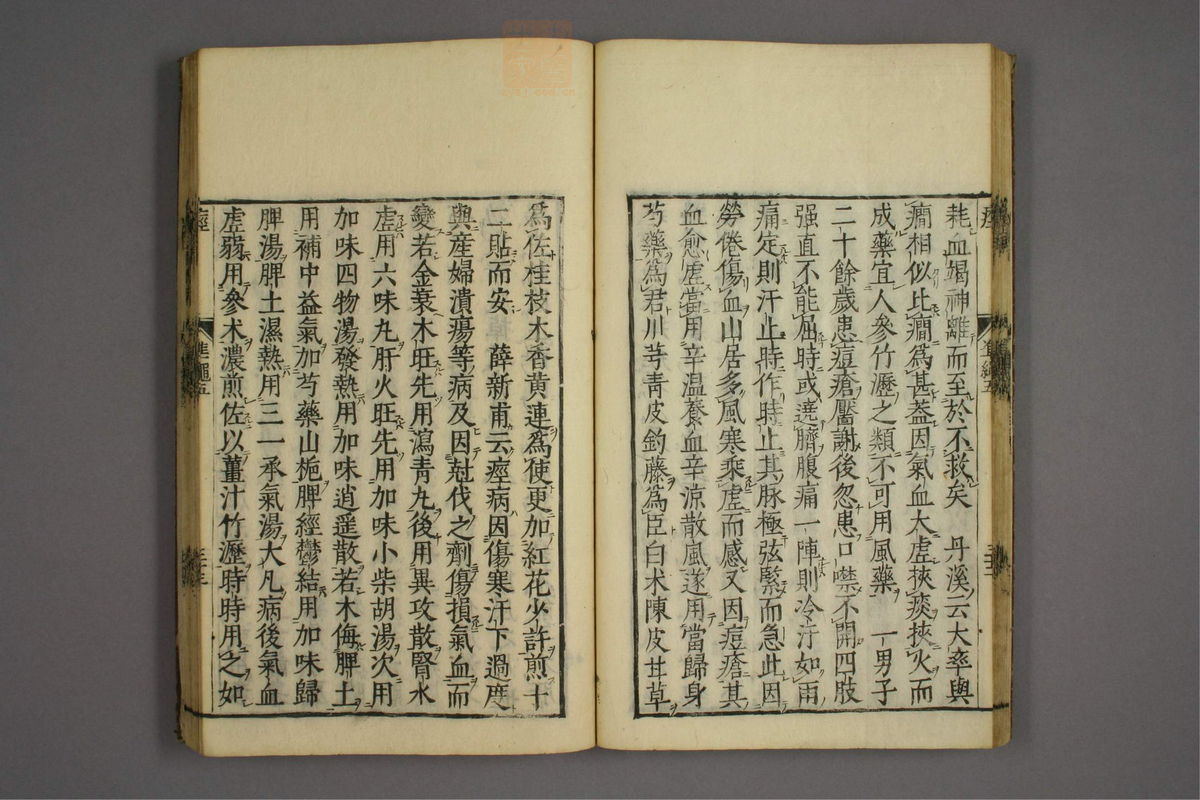 耗血竭神離而至於不救矣　丹溪云大率與
癎相似比癎爲甚蓋因氣血大虛挾痰挾火而
成藥宜人參竹瀝之類不可用風藥　一男子
二十餘歲患痘瘡靨謝後忽患口噤不開四肢
强直不能屈時或遶臍腹痛一陣則冷汗如雨
痛定則汗止時作時止其脉極弦緊而急此因
勞倦傷血山居多風寒乘虛而感又因痘瘡其
血愈虛當用辛温養血辛涼散風遂用當歸身
芍藥爲君川芎青皮釣藤爲臣白朮陳皮甘草
爲佐桂枝木香黄連爲使更加紅花少許煎十
二貼而安　薛新甫云痙病因傷寒汗下過度
與産婦潰瘍等病及因尅伐之劑傷損氣血而
變若金衰木旺先用瀉青丸後用異攻散腎水
虛用六味丸肝火旺先用加味小柴胡湯次用
加味四物湯發熱用加味逍遥散若木侮脾土
用補中益氣加芍藥山梔脾經鬱結用加味歸
脾湯脾土濕熱用三一承氣湯大凡病後氣血
虛弱用參朮濃煎佐以薑汁竹瀝時時用之如
痙
準繩五